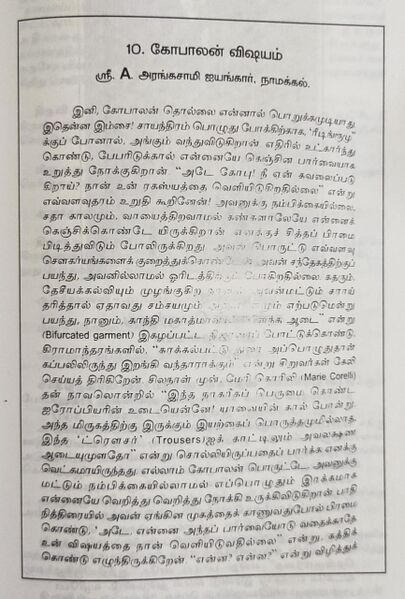 10. கோபாலன் விஷயம்
ஸ்ரீ. A. அரங்கசாமி ஐயங்கார், நாமக்கல்.
இனி, கோபாலன் தொல்லை என்னால் பொறுக்கமுடியாது.
இதென்ன இம்சை! சாயந்திரம் பொழுது போக்கிற்காக, 'ரீடிங்ரூமு'
க்குப் போனால், அங்கும் வந்துவிடுகிறான். எதிரில் உட்கார்ந்து
கொண்டு, பேபரிடுக்கால் என்னையே கெஞ்சின பார்வையாக
உறுத்து நோக்குகிறான். "அடே கோபு! நீ ஏன் கவலைப்படு
கிறாய்? நான் உன் ரகஸ்யத்தை வெளியிடுகிறதில்லை" என்று
எவ்வளவுதாம் உறுதி கூறினேன்! அவனுக்கு நம்பிக்கையில்லை.
சதா காலமும், வாயைத்திறவாமல் கண்களாலேயே என்னைக்
கெஞ்சிக்கொண்டே யிருக்கிறான். எனக்குச் சித்தப் பிரமை
பிடித்துவிடும் போலிருக்கிறது. அவன் பொருட்டு எவ்வளவு
சௌகர்யங்களைக் குறைத்துக்கொண்டேன். அவன் சந்தேகத்திற்குப்
பயந்து, அவனில்லாமல் ஓரிடத்திற்கும் போகிறதில்லை. கதரும்,
தேசீயக்கல்வியும் முழுங்குகிற காலத்தில் அவன்மட்டும் சராய்
தரித்தால் ஏதாவது சம்சயமும் ஏற்படுமென்று
பயந்து, நானும், காந்தி மகாத்மாவால் ஆடை" என்று
(Bifurcated garment) இகழப்பட்ட போட்டுக்கொண்டு,
கிராமாந்தரங்களில், "காக்கல்பட்டு துரை அப்பொழுதுதான்
கப்பலிலிருந்து இறங்கி வந்தாராக்கும்" என்று சிறுவர்கள் கேலி
செய்யத் திரிகிறேன். சிலநாள் முன், மேரி கொரிலி (Marie Corelli)
தன் நாவலொன்றில் "இந்த நாகரீகப் பெருமை கொண்ட
ஐரோப்பியரின் உடையென்னே! யானையின் கால் போன்று,
அந்த மிருகத்திற்கு இருக்கும் இயற்கைப் பொருத்தமுமில்லாத,
இந்த 'ட்ரௌசர்' (Trousers)ஐக் காட்டிலும் அவலக்ஷண
ஆடையுமுளதோ" என்று சொல்லியிருப்பதைப் பார்க்க எனக்கு
வெட்கமாயிருந்தது. எல்லாம் கோபாலன் பொருட்டே. அவனுக்கு
மட்டும் நம்பிக்கையில்லாமல் எப்பொழுதும் இரக்கமாக
என்னையே வெறித்து வெறித்து நோக்கி உருக்கிவிடுகிறான். பாதி
நித்திரையில் அவன் ஏங்கின முகத்தைக் காணுவதுபோல் பிரமை
கொண்டு, 'அடே, என்னை அந்தப் பார்வையோடு வதைக்காதே
உன் விஷயத்தை நான் வெளியிடுவதில்லை" என்று, கத்திக்
கொண்டு எழுந்திருகிறேன். "என்ன? என்ன?" என்று விழித்துக்